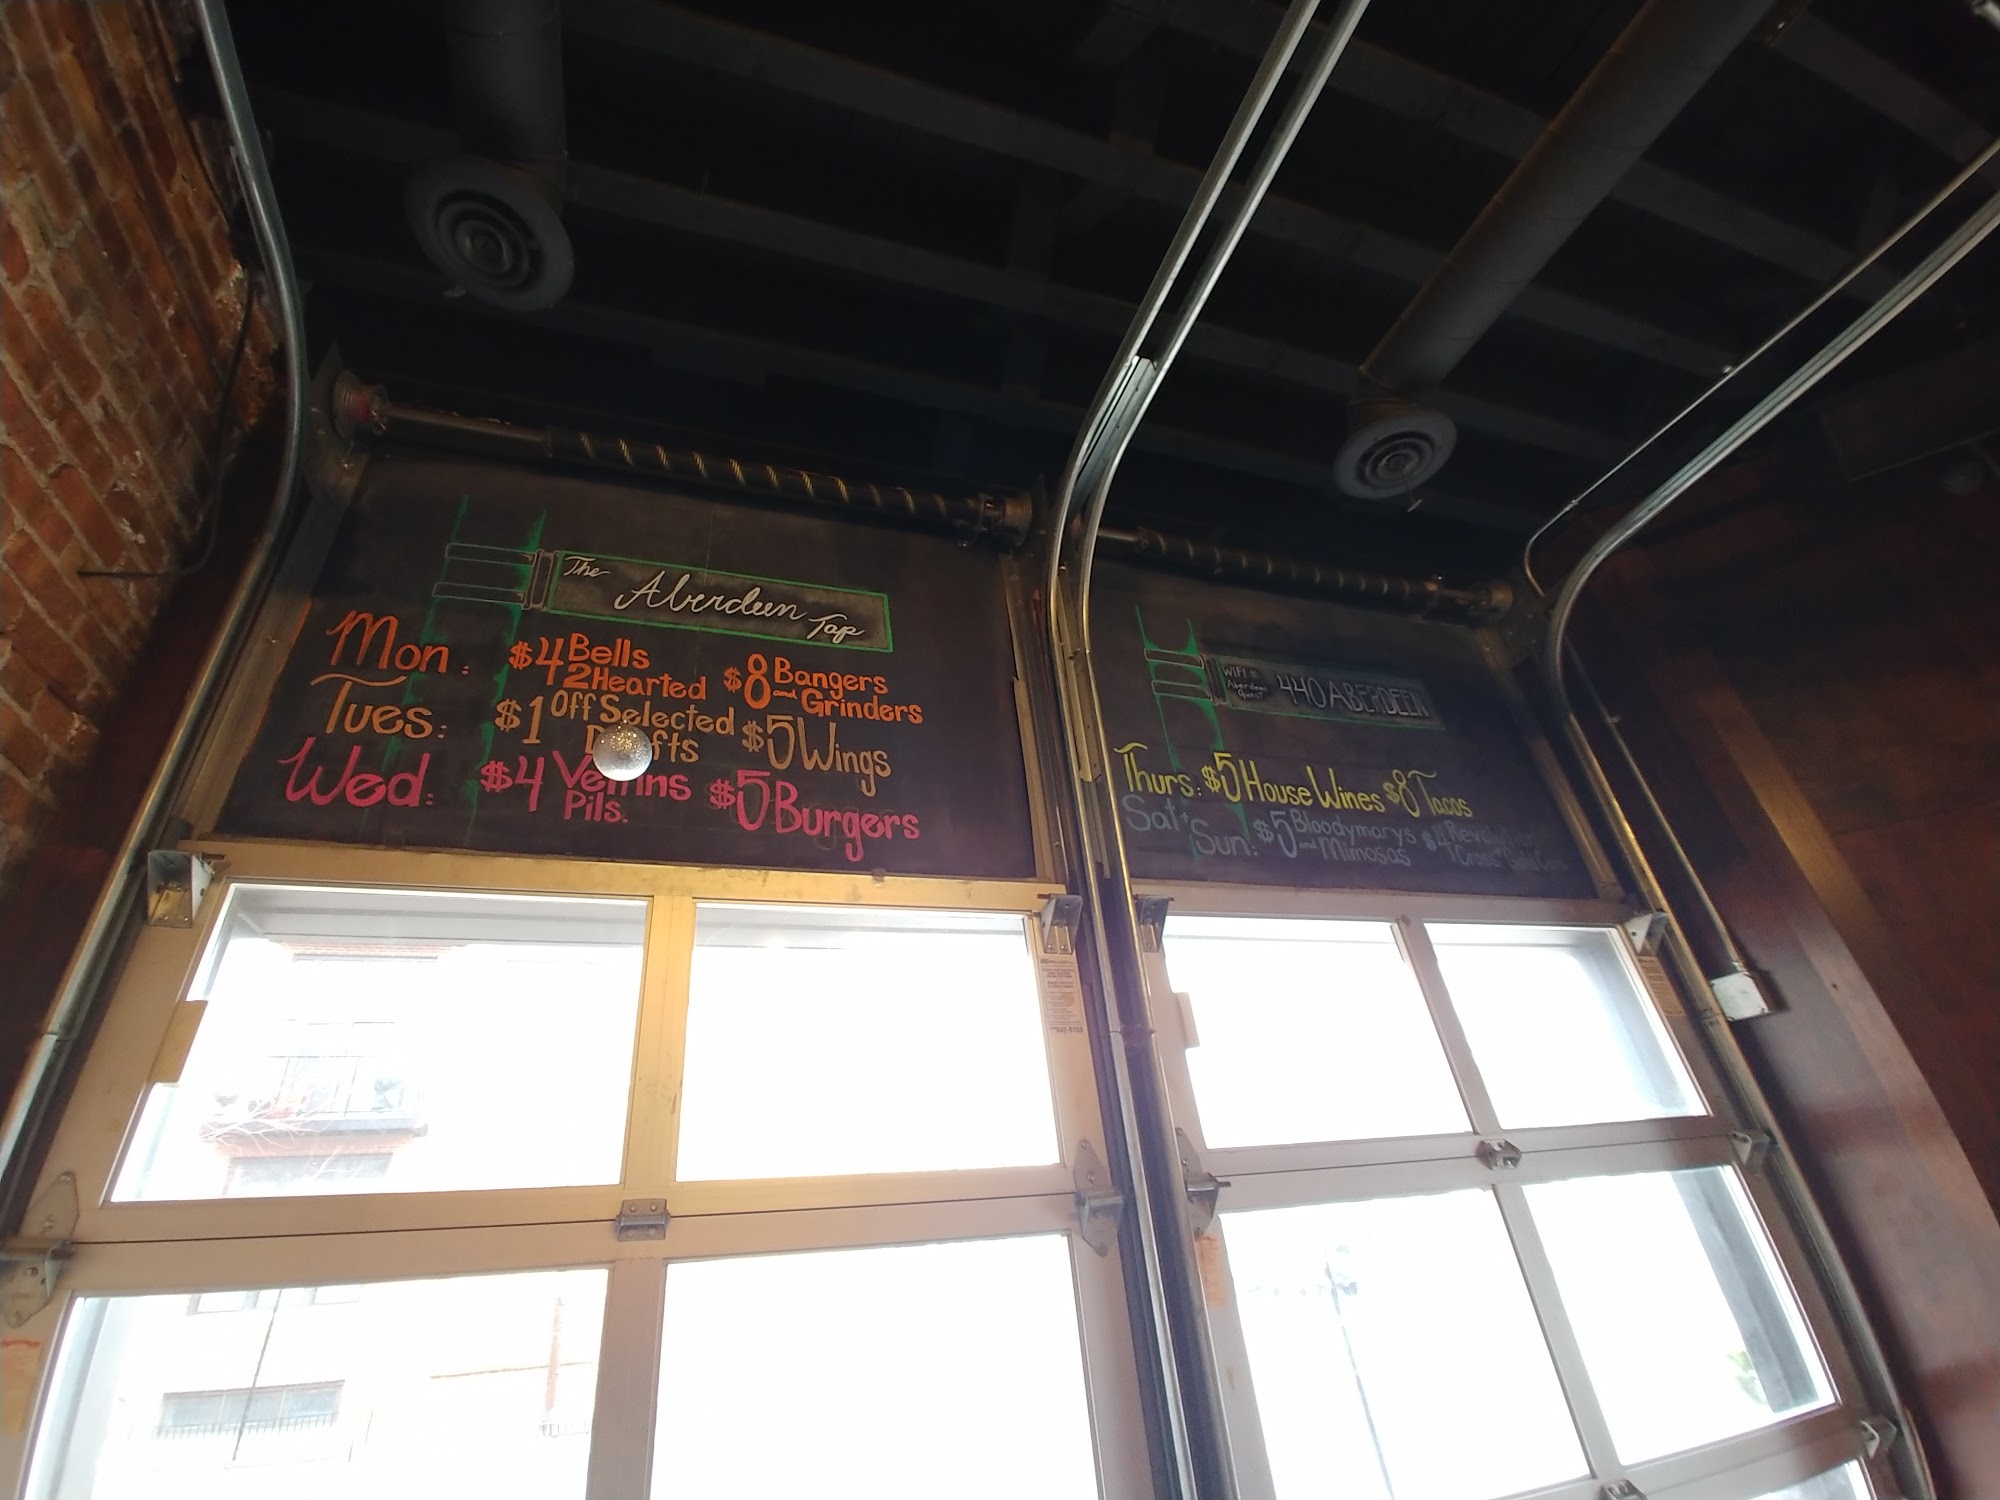 The Aberdeen Tap
Mon: $4 Bells 2Hearted $8 Bangers and Grinders
Tues: $1 Off Selected $5 Wings
Wed: $4 Pils. $5 Burgers
WIFI =
Aberdeen Guest
440ABERDEEN
Thurs: $5 House Wines $8 Tacos
Sat + Sun: $5 Bloodymarys and Mimosas $4